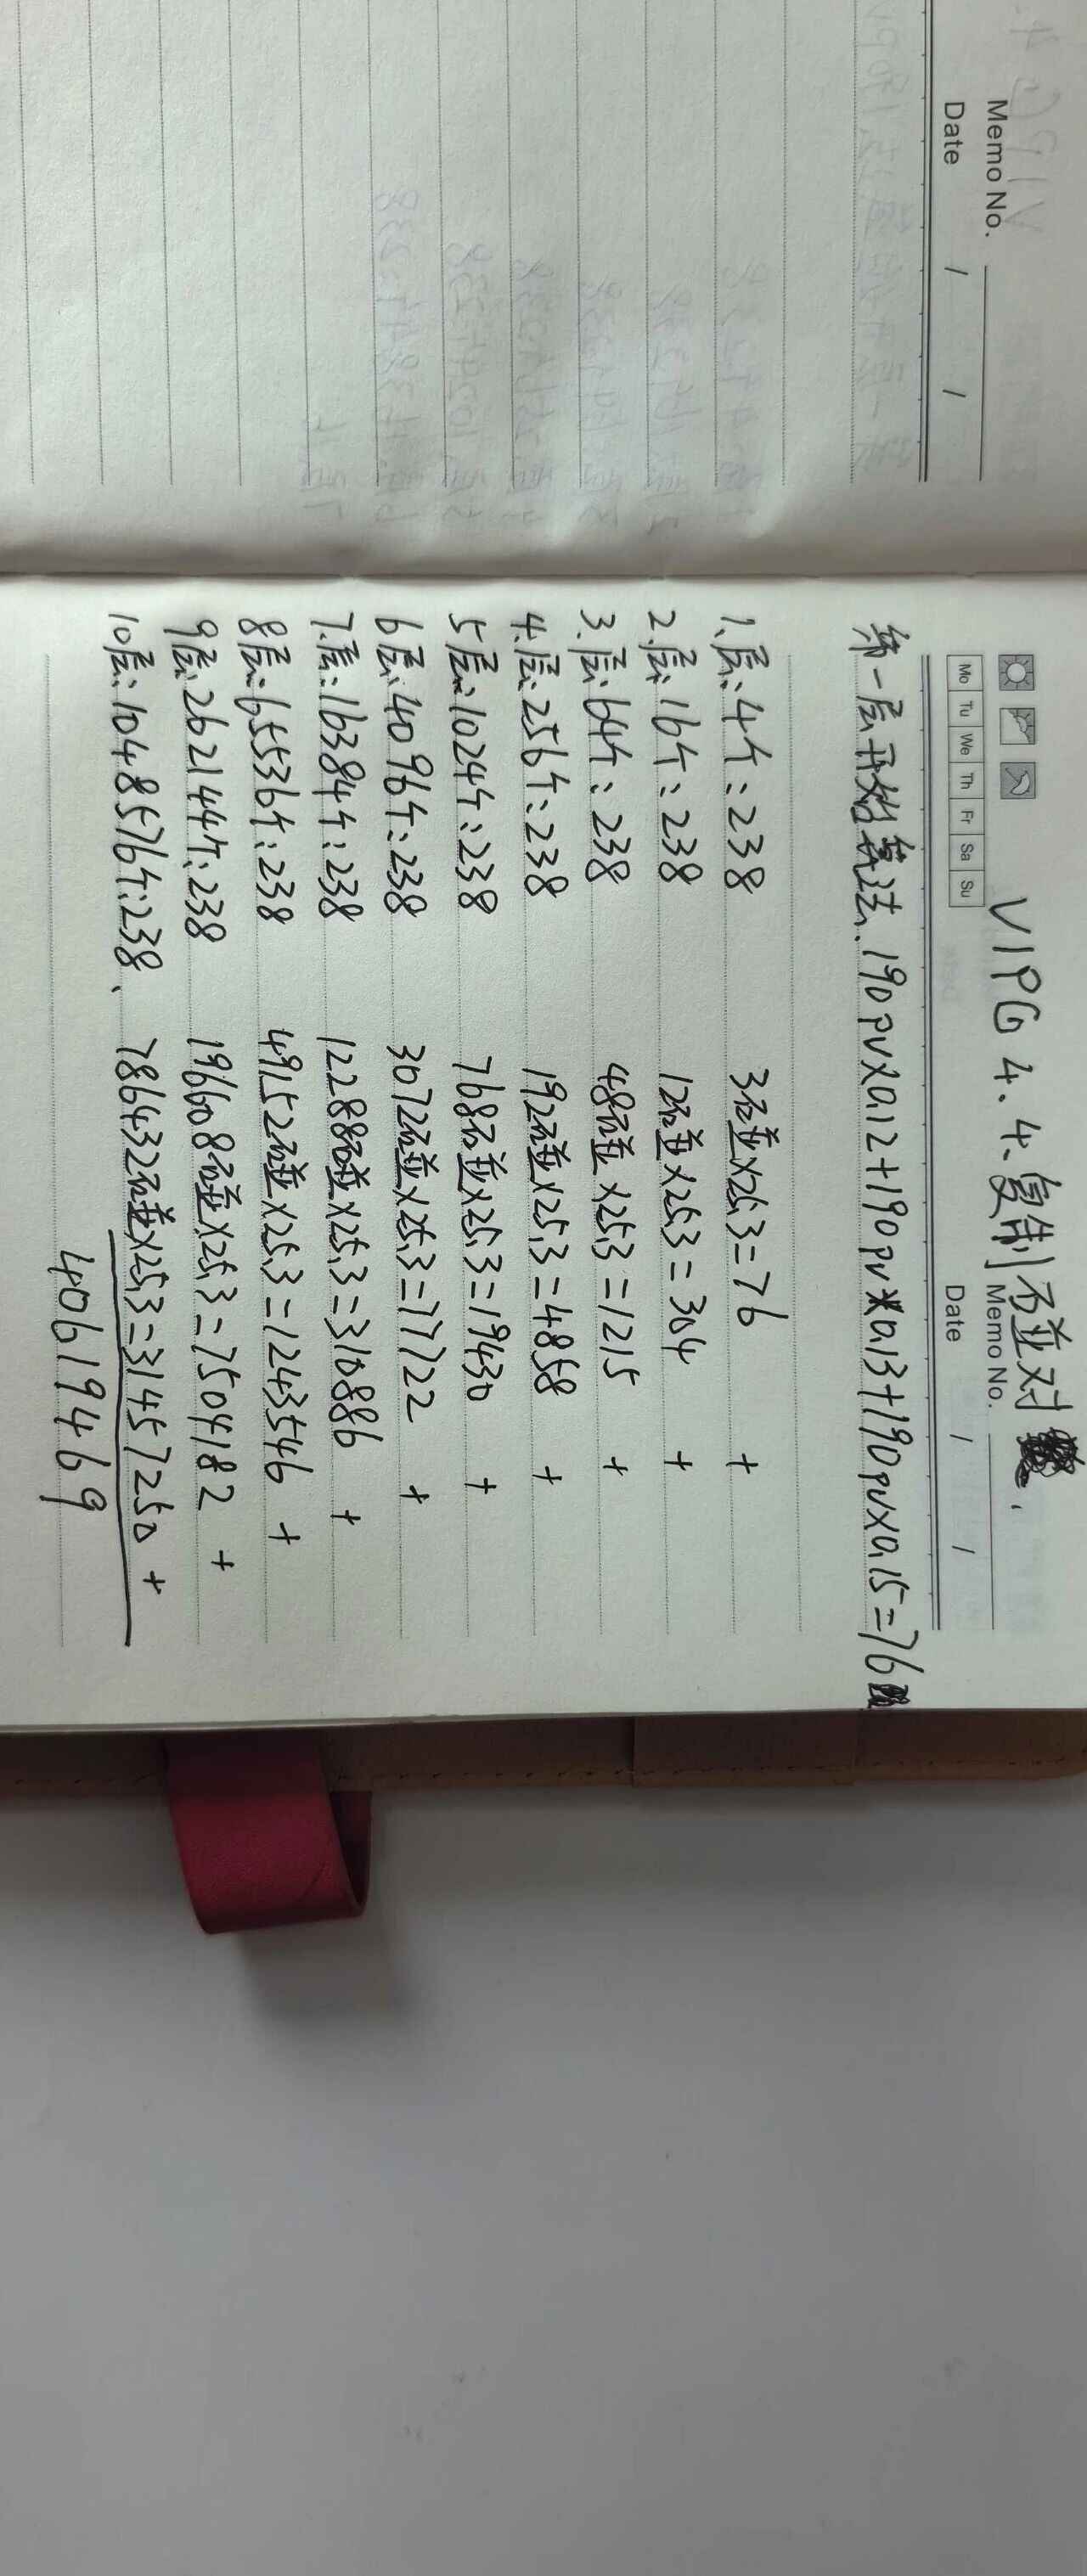 Memo No.
Date / /
VIPG 4.4.复制碰对
Memo No.
Mo Tu We Th Fr Sa Su
Date / /
第一层开始算法.190pvx0.12+190pvx0.13+190pvx0.15=76
1.层:4个:238 3碰x25.3=76 +
2.层:16个:238 12碰x25.3=304 +
3.层:64个:238 48碰x25.3=1215 +
4.层:256个:238 192碰x25.3=4858 +
5层:1024个:238 768碰x25.3=19430 +
6层:4096个:238 3072碰x25.3=77722 +
7.层:16384个:238 12288碰x25.3=310886 +
8层:65536个:238 49152碰x25.3=1243546 +
9层:262144个:238 196608碰x25.3=7504182 +
10层:1048576个:238、 786432碰x25.3=31457250 +
40619469